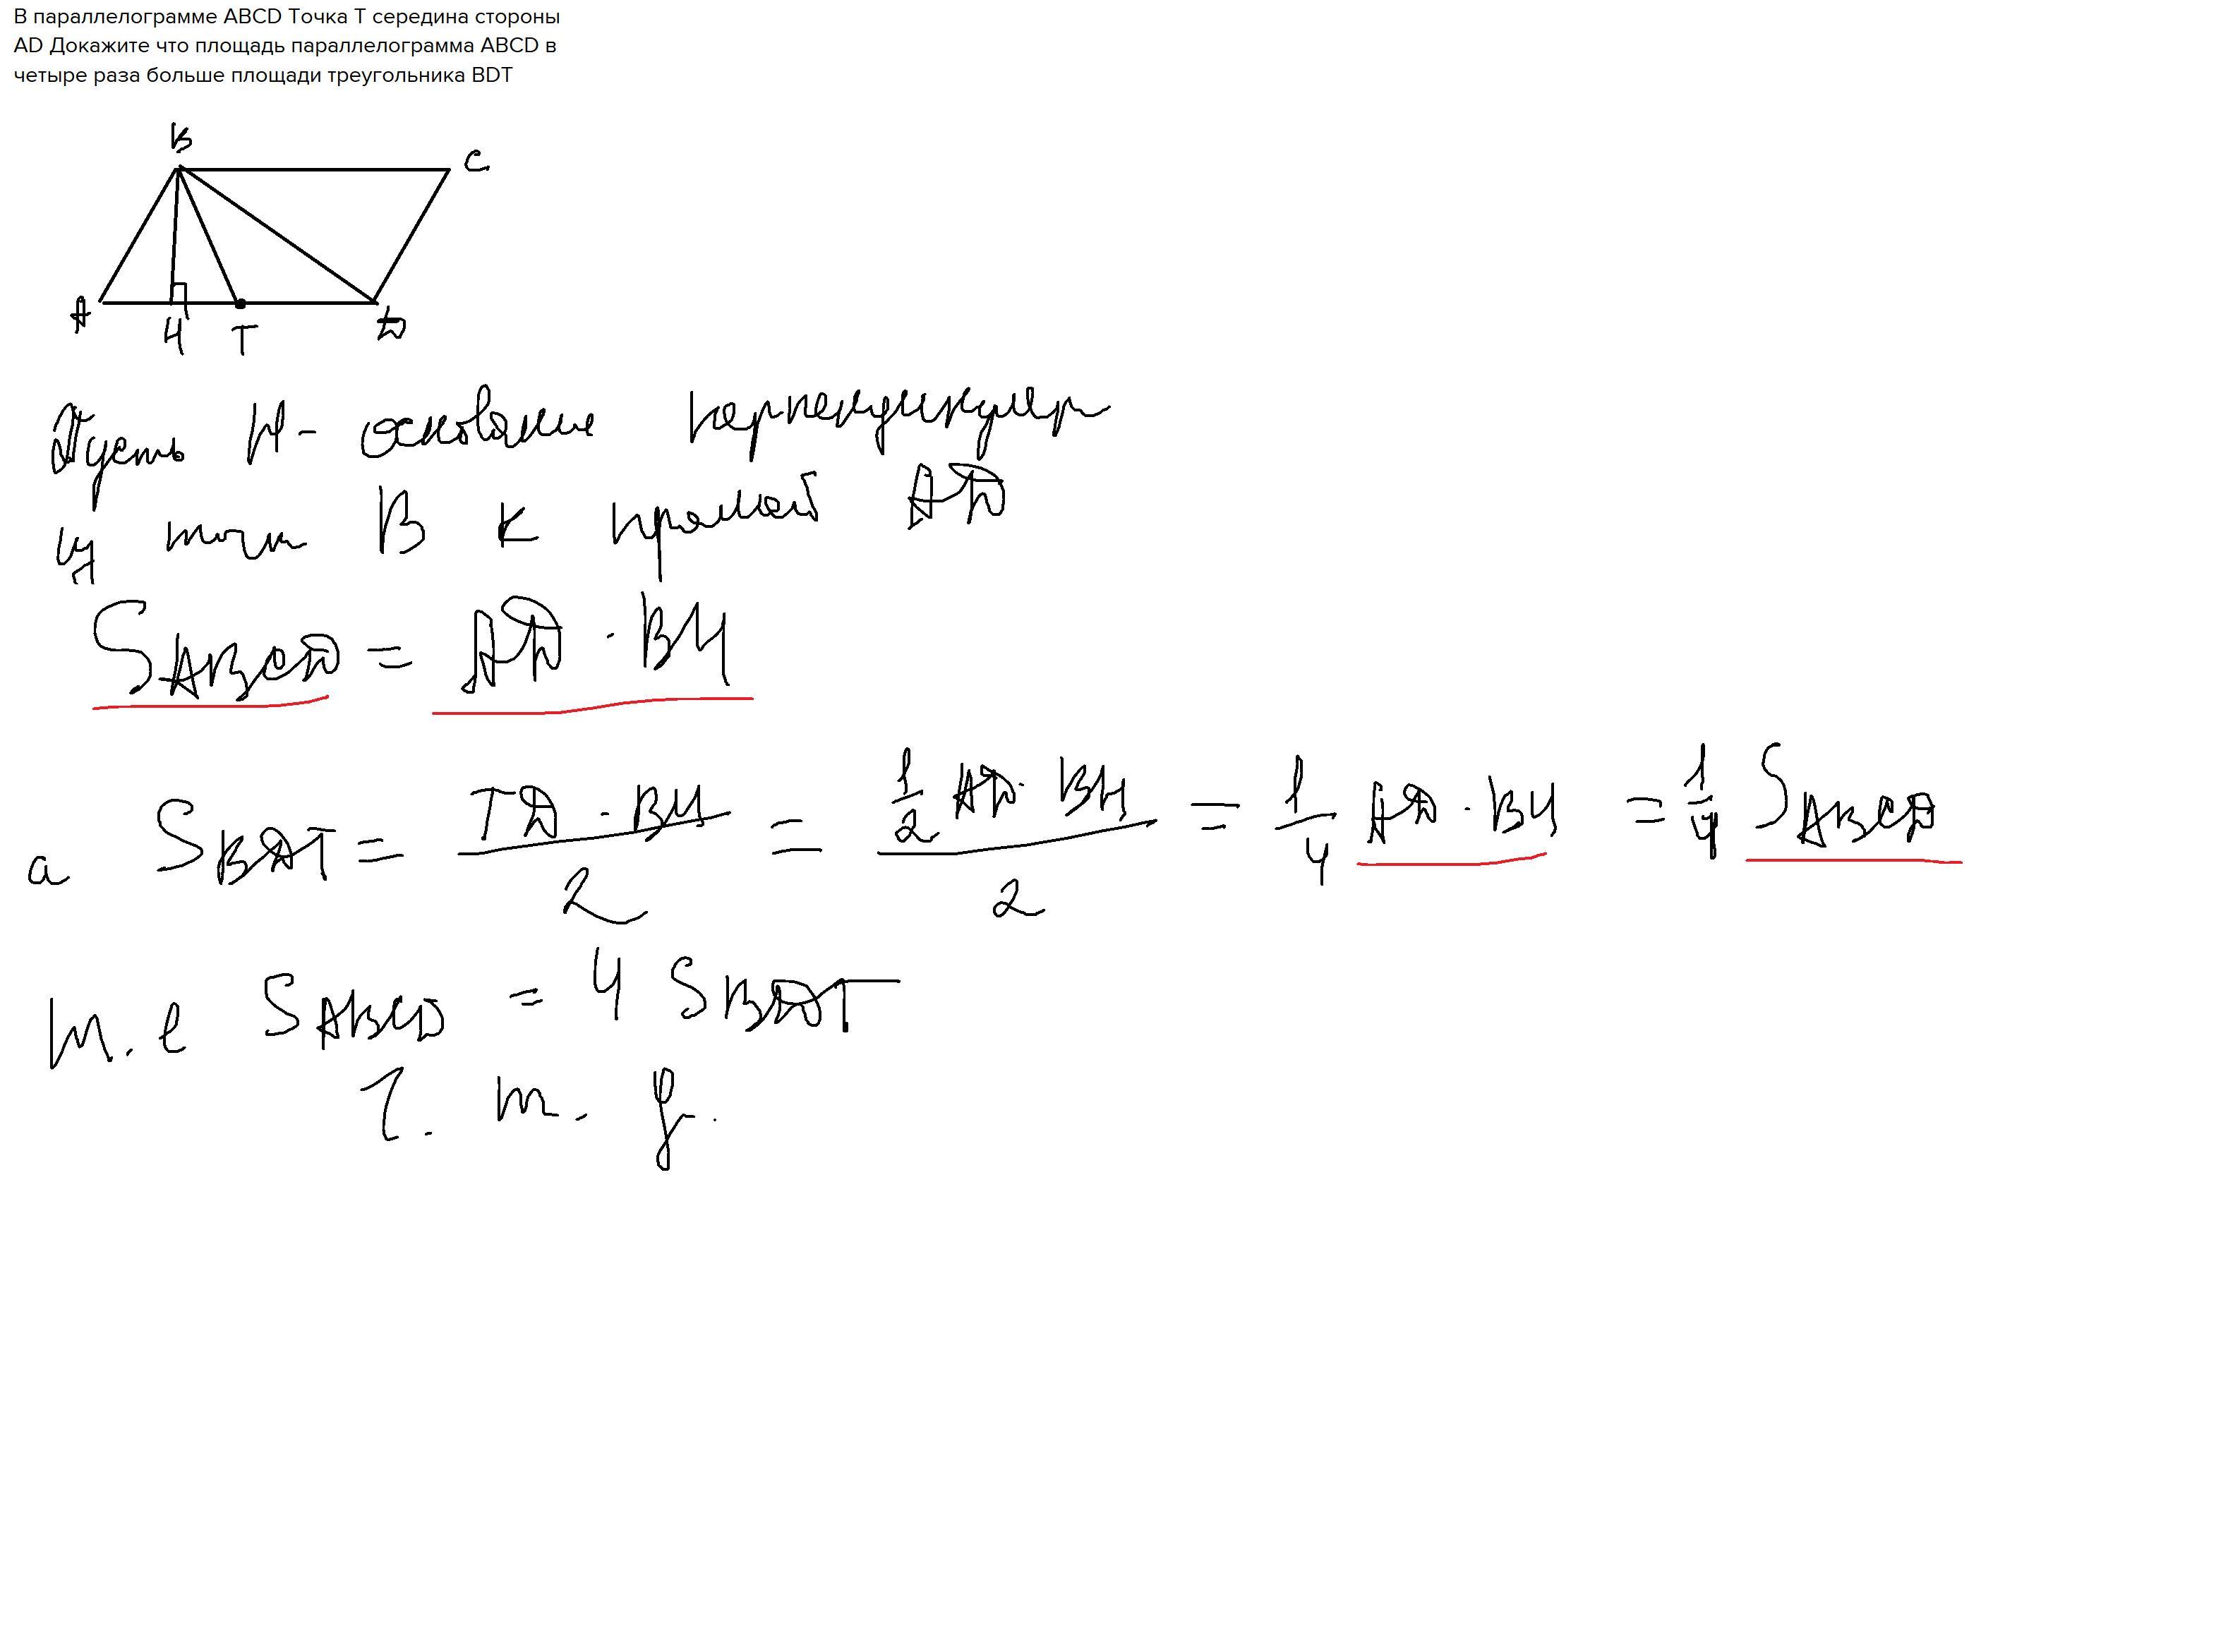 В параллелограмме ABCD Точка T середина стороны
AD Докажите что площадь параллелограмма ABCD в
четыре раза больше площади треугольника BDT
B
C
A
H
T
D
Пусть H - основание перпендикуляр
из точки B к прямой AD
S_ABCD = AD · BH
а S_BDT = (TD · BH)/2 = (1/2 AD · BH)/2 = 1/4 AD · BH = 1/4 S_ABCD
т. е S_ABCD = 4 S_BDT
ч. т. д.